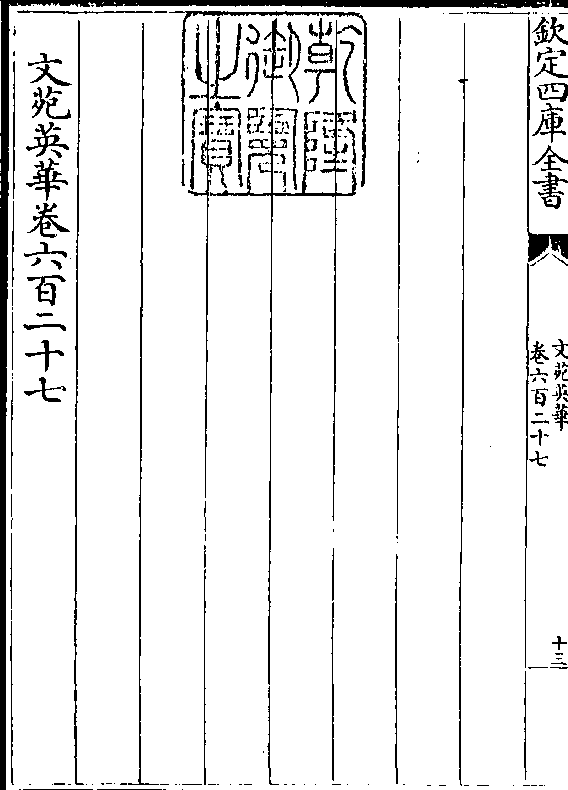 欽定四庫全書
文苑英華
卷六百二十七
十三
乾隆
御覽
之寶
文苑英華卷六百二十七